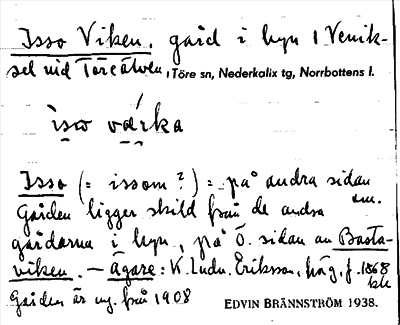 Isso Viken, gård i byn 1 Venik-
sel vid Töreälven, Töre sn, Nederkalix tg, Norrbottens l.
ìsω vǽrka
Isso (= issom ?) = på andra sidan
Gården ligger skild från de andra
gårdarna i byn, på Ö. sidan av Basta-
viken. – Ägare: K. Ludv. Eriksson, häg, f. 1868
Gården är ny från 1908
EDVIN BRÄNNSTRÖM 1938.